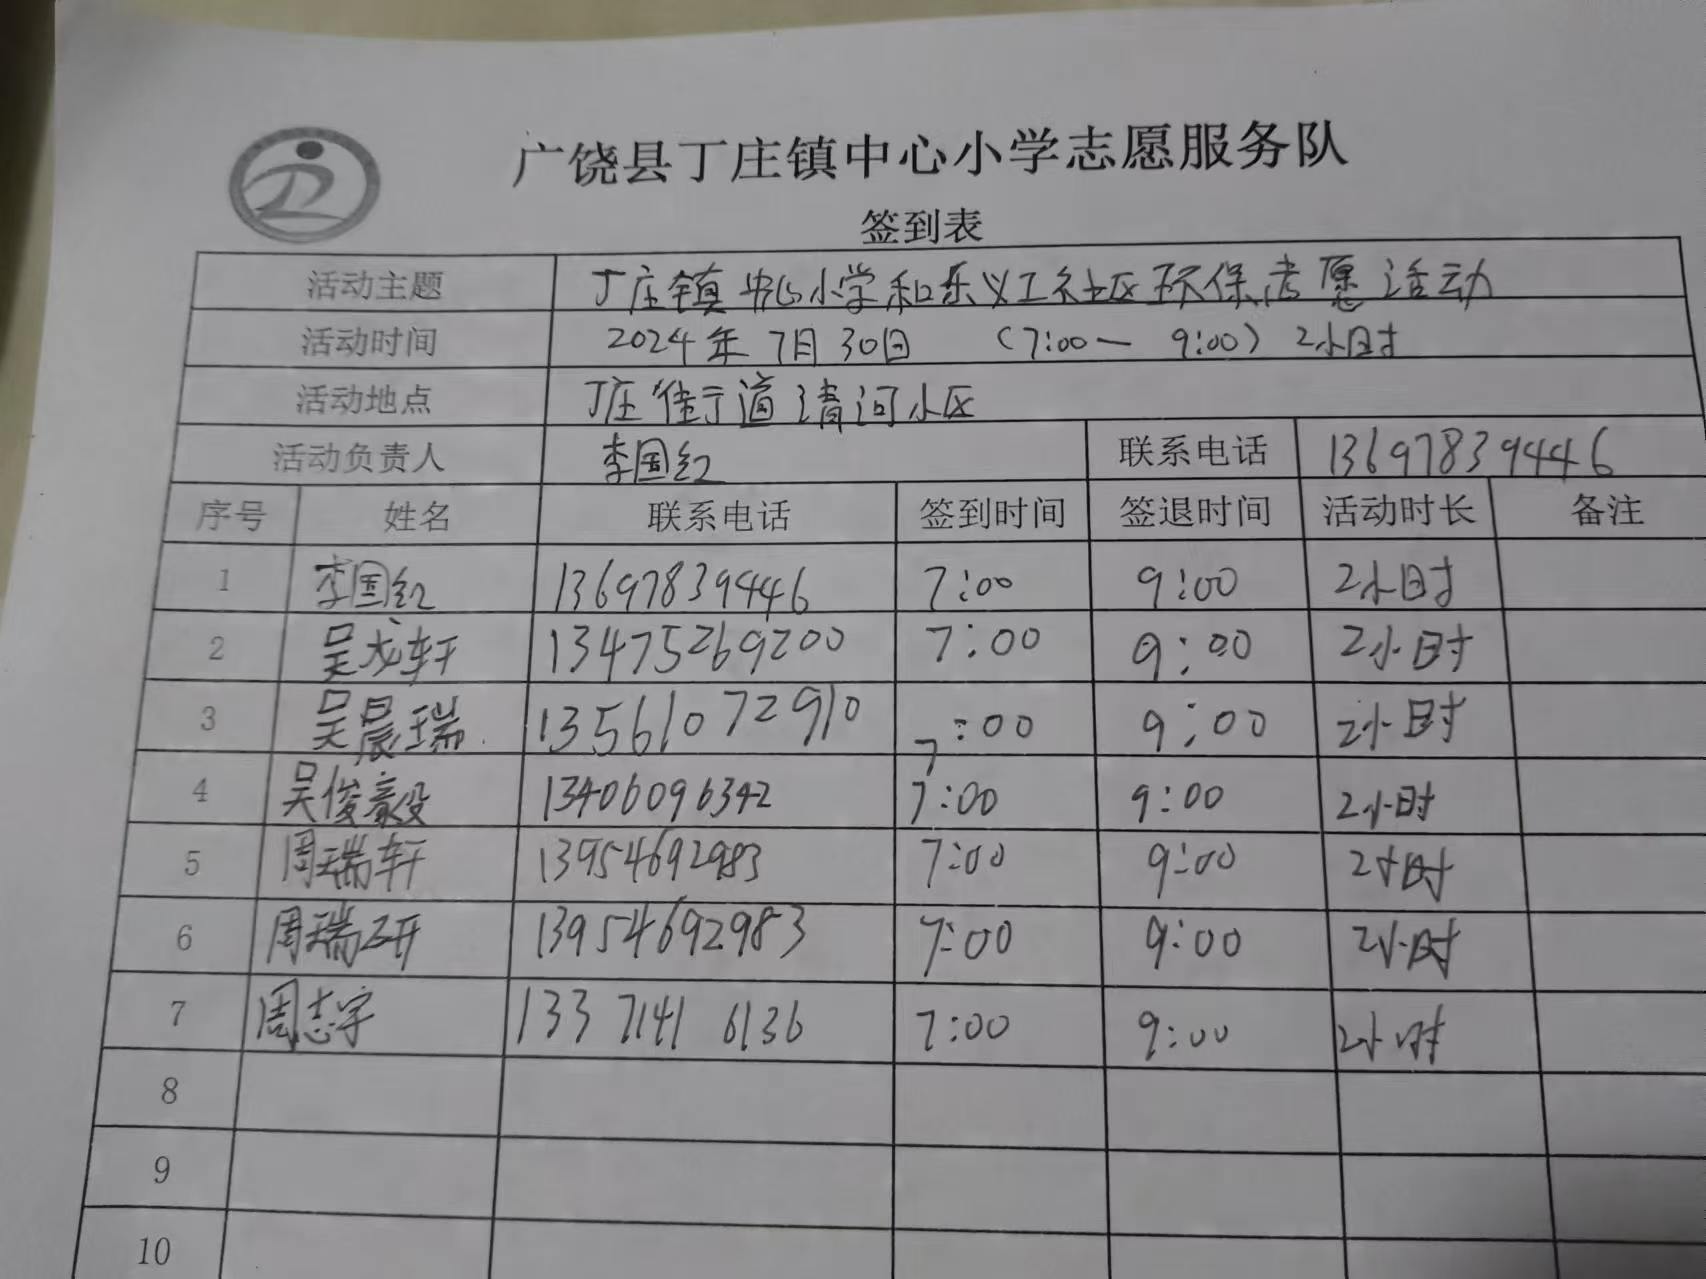 广饶县丁庄镇中心小学志愿服务队
签到表
活动主题 丁庄镇中心小学和乐义工社区环保志愿活动
活动时间 2024年7月30日 (7:00一 9:00) 2小时
活动地点 丁庄街道清河小区
活动负责人 李国红 联系电话 13697839446
序号 姓名 联系电话 签到时间 签退时间 活动时长 备注
1 李国红 13697839446 7:00 9:00 2小时
2 吴龙轩 13475269200 7:00 9:00 2小时
3 吴晨瑞 13561072910 7:00 9:00 2小时
4 吴俊毅 13406096342 7:00 9:00 2小时
5 周瑞轩 13954692983 7:00 9:00 2小时
6 周瑞研 13954692983 7:00 9:00 2小时
7 周志宇 133 7141 6136 7:00 9:00 2小时
8
9
10